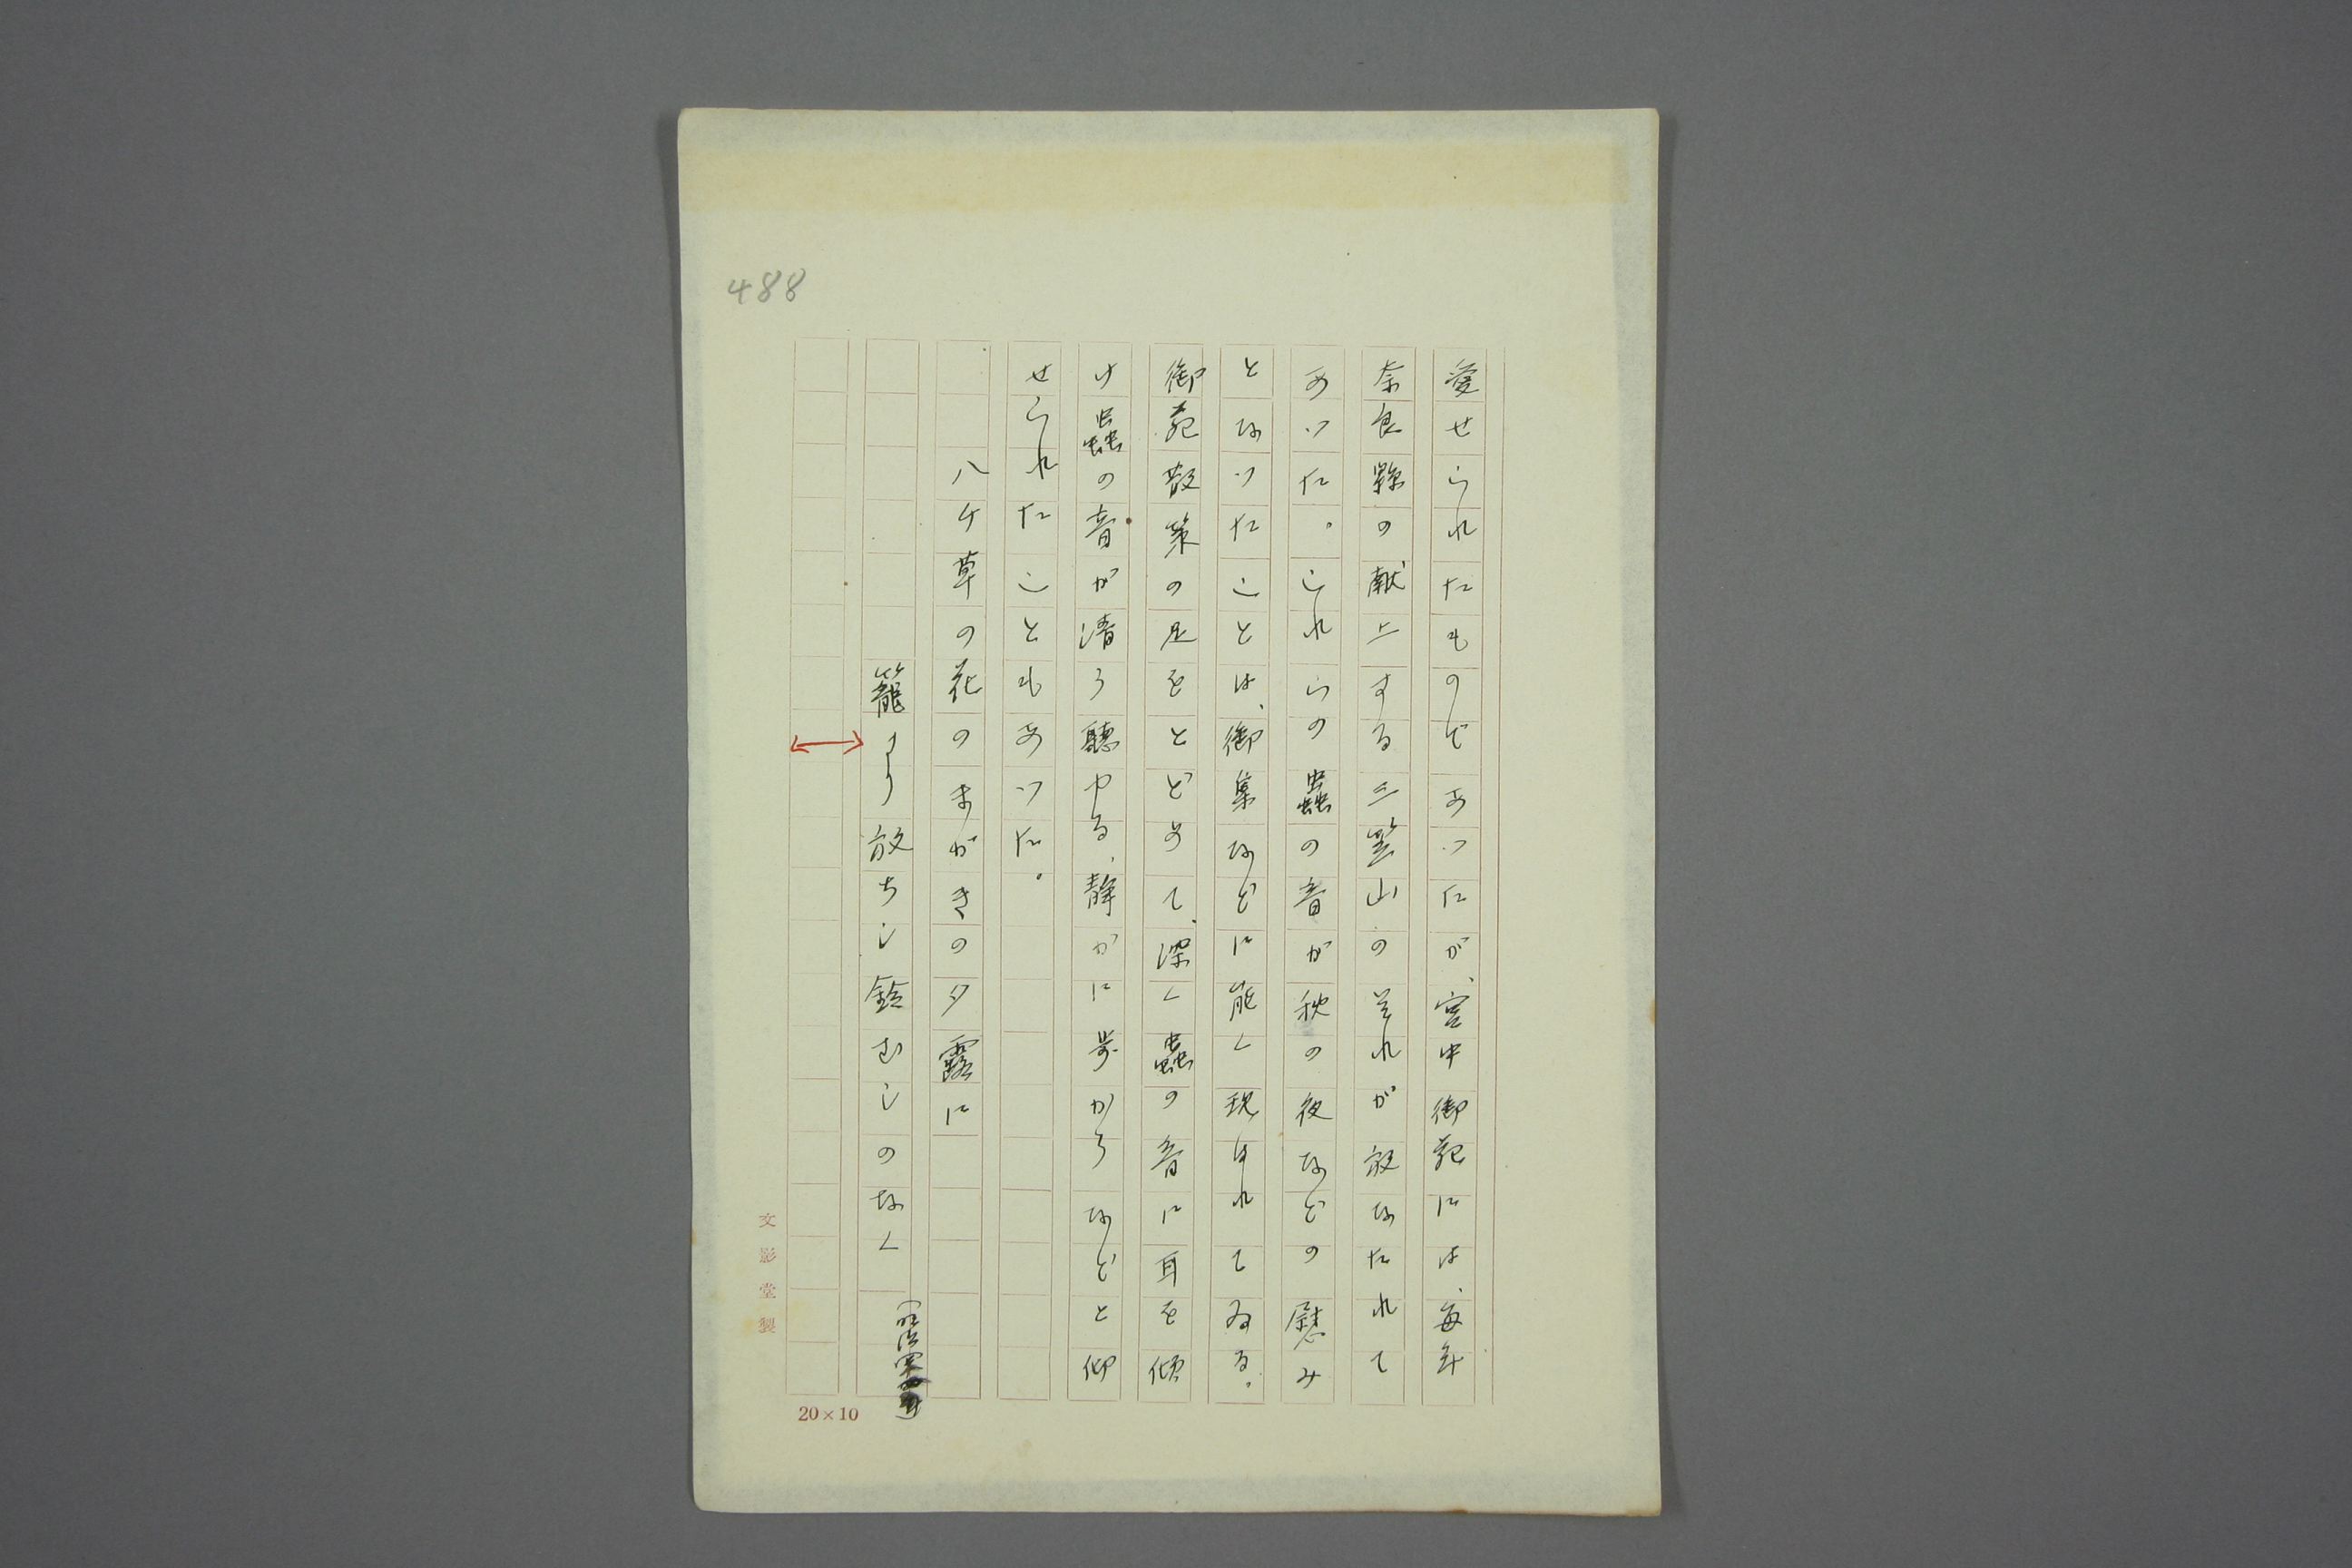 488
愛せられたものであつたが、宮中御苑には、毎年
奈良縣の献上する三笠山のそれが放なたれて
あつた。これらの蟲の音が秋の夜などの慰み
となつたことは、御集などに能く現はれてゐる。
御苑散策の足をとどめて、深く蟲の音に耳を傾
け蟲の音が清う聽ゆる、静かに歩かうなどと仰
せられたこともあつた。
八千草の花のまがきの夕露に
籠より放ちし鈴むしのなく
文影堂製
20×10